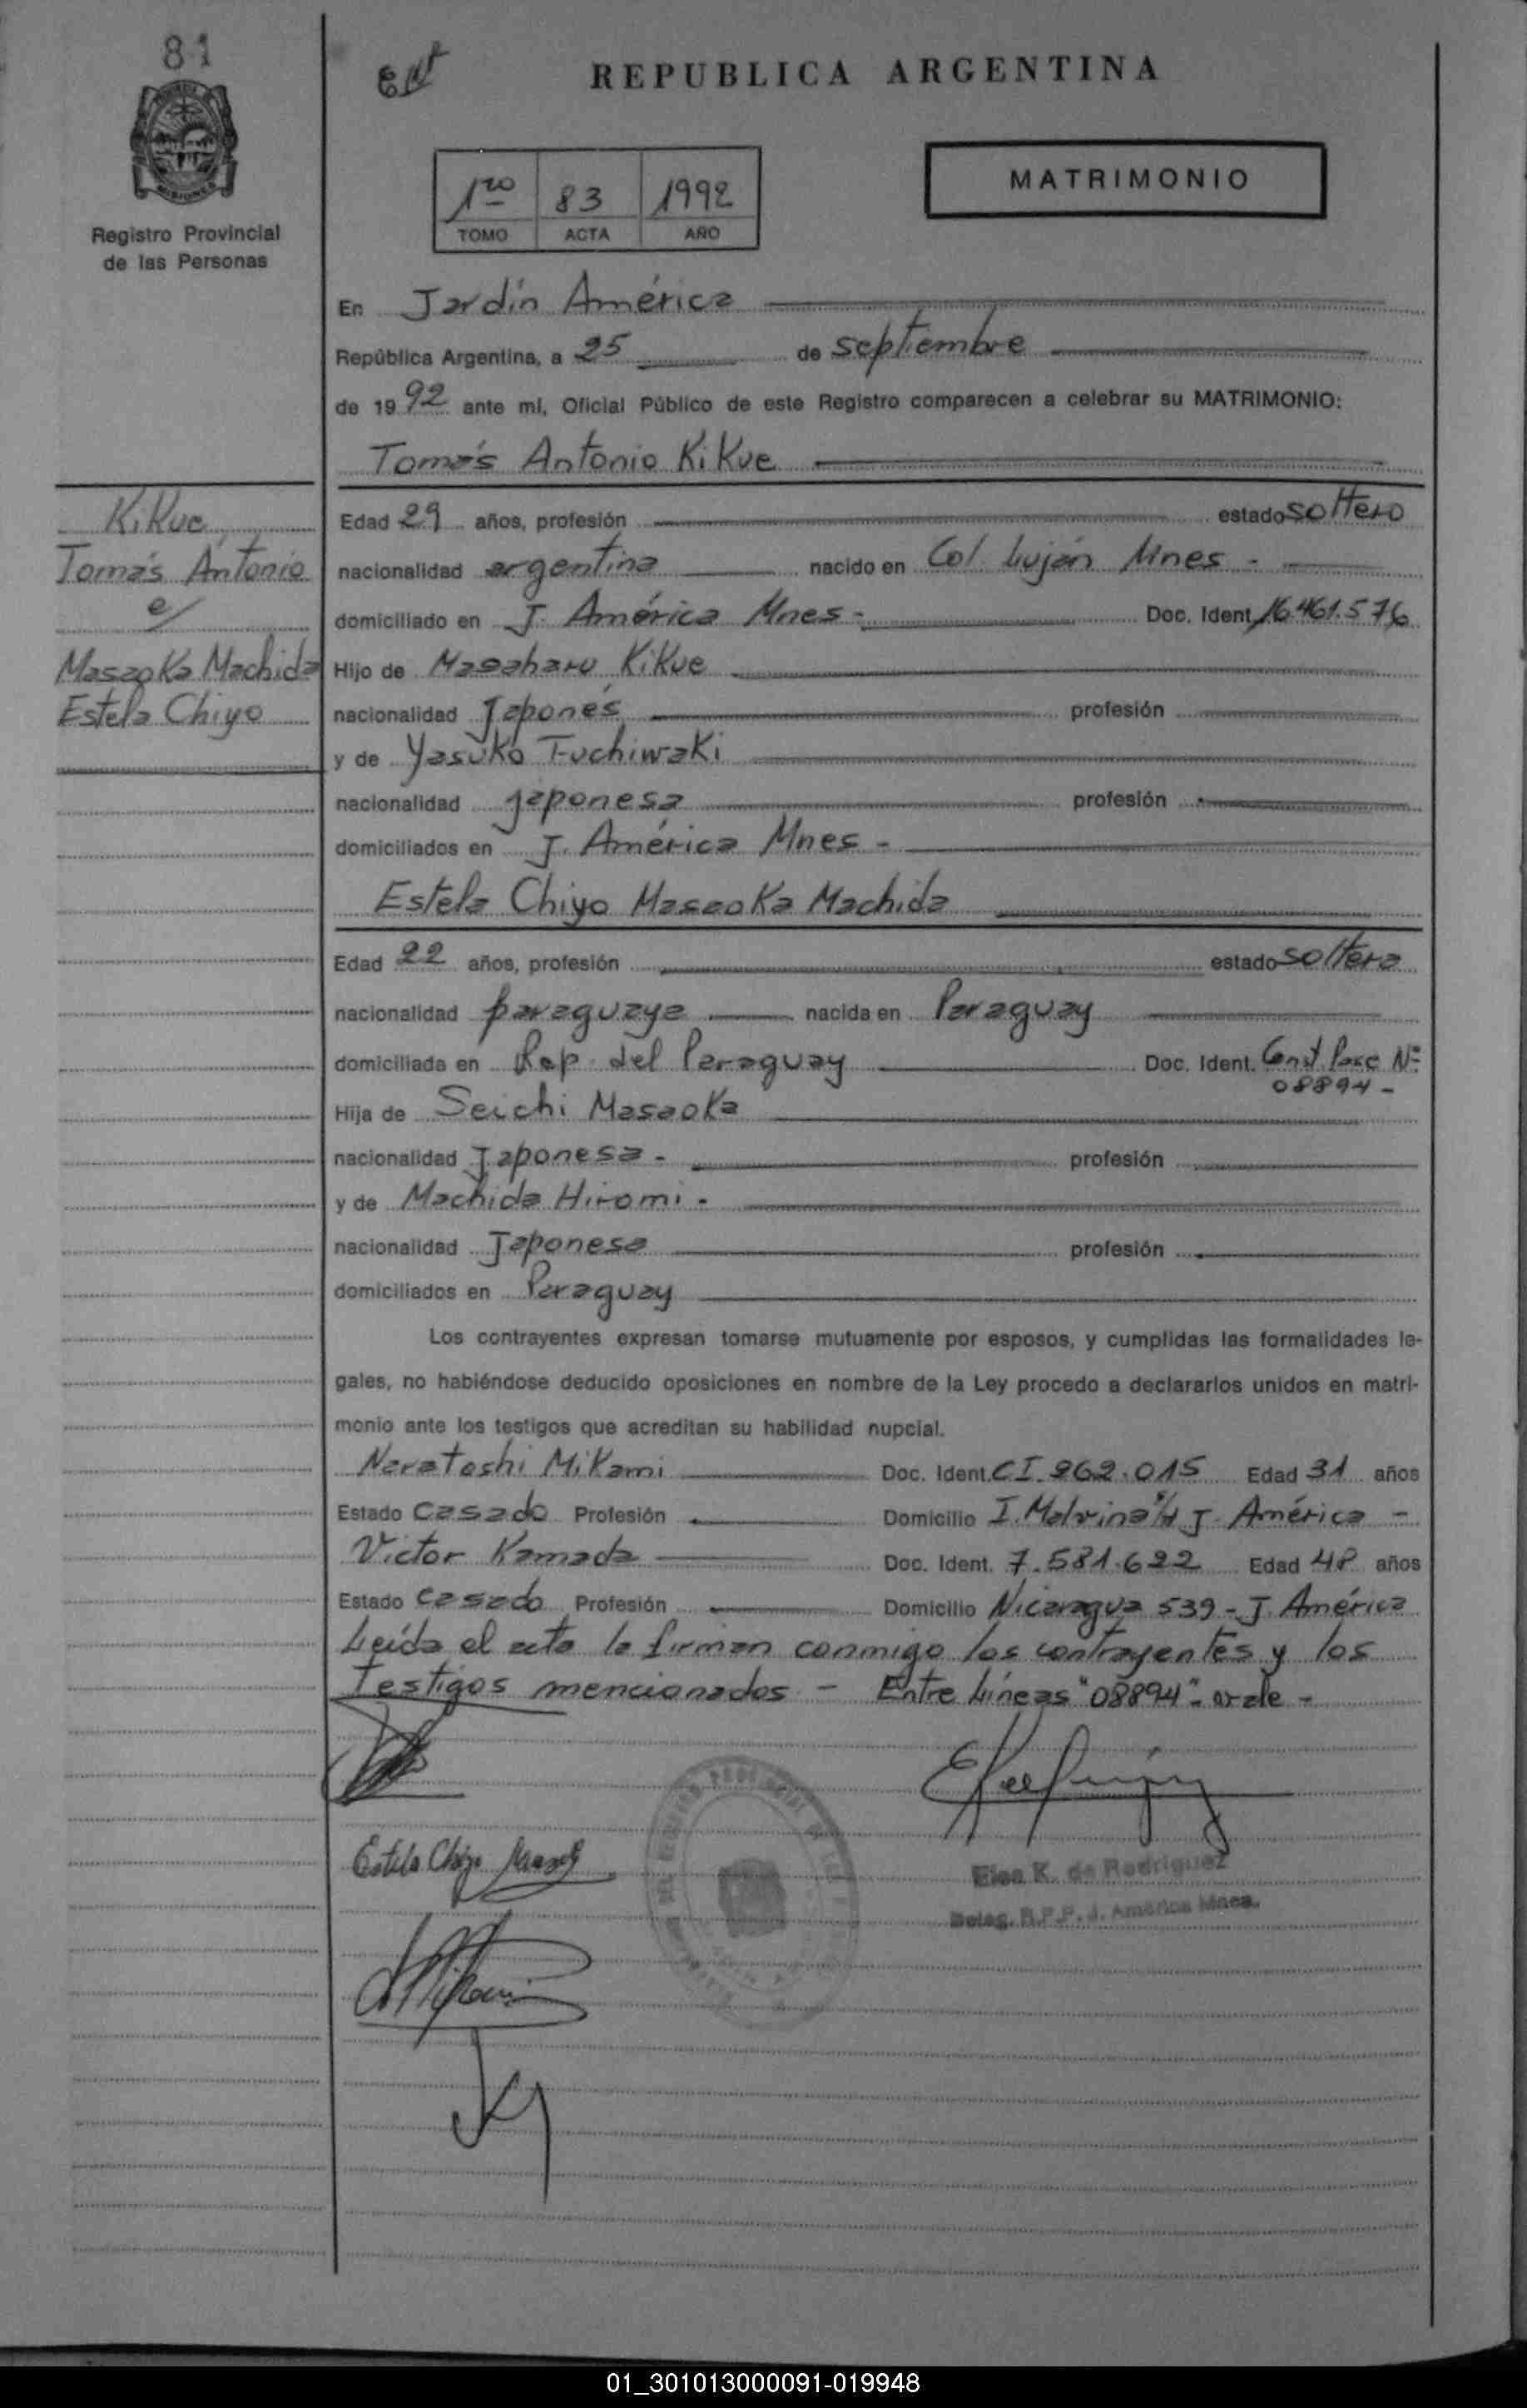 81
Ent
REPUBLICA ARGENTINA
MISIONES
Registro Provincial
de las Personas
1ro 83 1992
TOMO ACTA AÑO
MATRIMONIO
En Jardín América
República Argentina, a 25 de septiembre
de 1992 ante mí, Oficial Público de este Registro comparecen a celebrar su MATRIMONIO:
Tomás Antonio Kikue
Kikue,
Tomás Antonio
c/
Masaoka Machida
Estela Chiyo
Edad 29 años, profesión estado soltero
nacionalidad argentina nacido en Col. Luján Mnes -
domiciliado en J. América Mnes - Doc. Ident. 16.461.576
Hijo de Masaharu Kikue
nacionalidad Japonés profesión
y de Yasuko Fuchiwaki
nacionalidad japonesa profesión
domiciliados en J. América Mnes -
Estela Chiyo Masaoka Machida
Edad 22 años, profesión estado soltera
nacionalidad paraguaya nacida en Paraguay
domiciliada en Rep. del Paraguay Doc. Ident. Const Pasc Nº
08894 -
Hija de Seichi Masaoka
nacionalidad Japonesa - profesión
y de Machida Hiromi -
nacionalidad Japonesa profesión
domiciliados en Paraguay
Los contrayentes expresan tomarse mutuamente por esposos, y cumplidas las formalidades le-
gales, no habiéndose deducido oposiciones en nombre de la Ley procedo a declararlos unidos en matri-
monio ante los testigos que acreditan su habilidad nupcial.
Naratoshi Mikami Doc. Ident. CI 262.015 Edad 31 años
Estado Casado Profesión Domicilio I. Malvinas s/n J. América -
Victor Kamada Doc. Ident. 7.581.622 Edad 48 años
Estado Casado Profesión Domicilio Nicaragua 539 - J. América
Leída el acta la firman conmigo los contrayentes y los
Testigos mencionados - Entre Líneas "08894" - vale -
Estela Chiyo
Elsa K. de Rodriguez
Deleg. R.P.P. J. América Mnes.
01_301013000091-019948